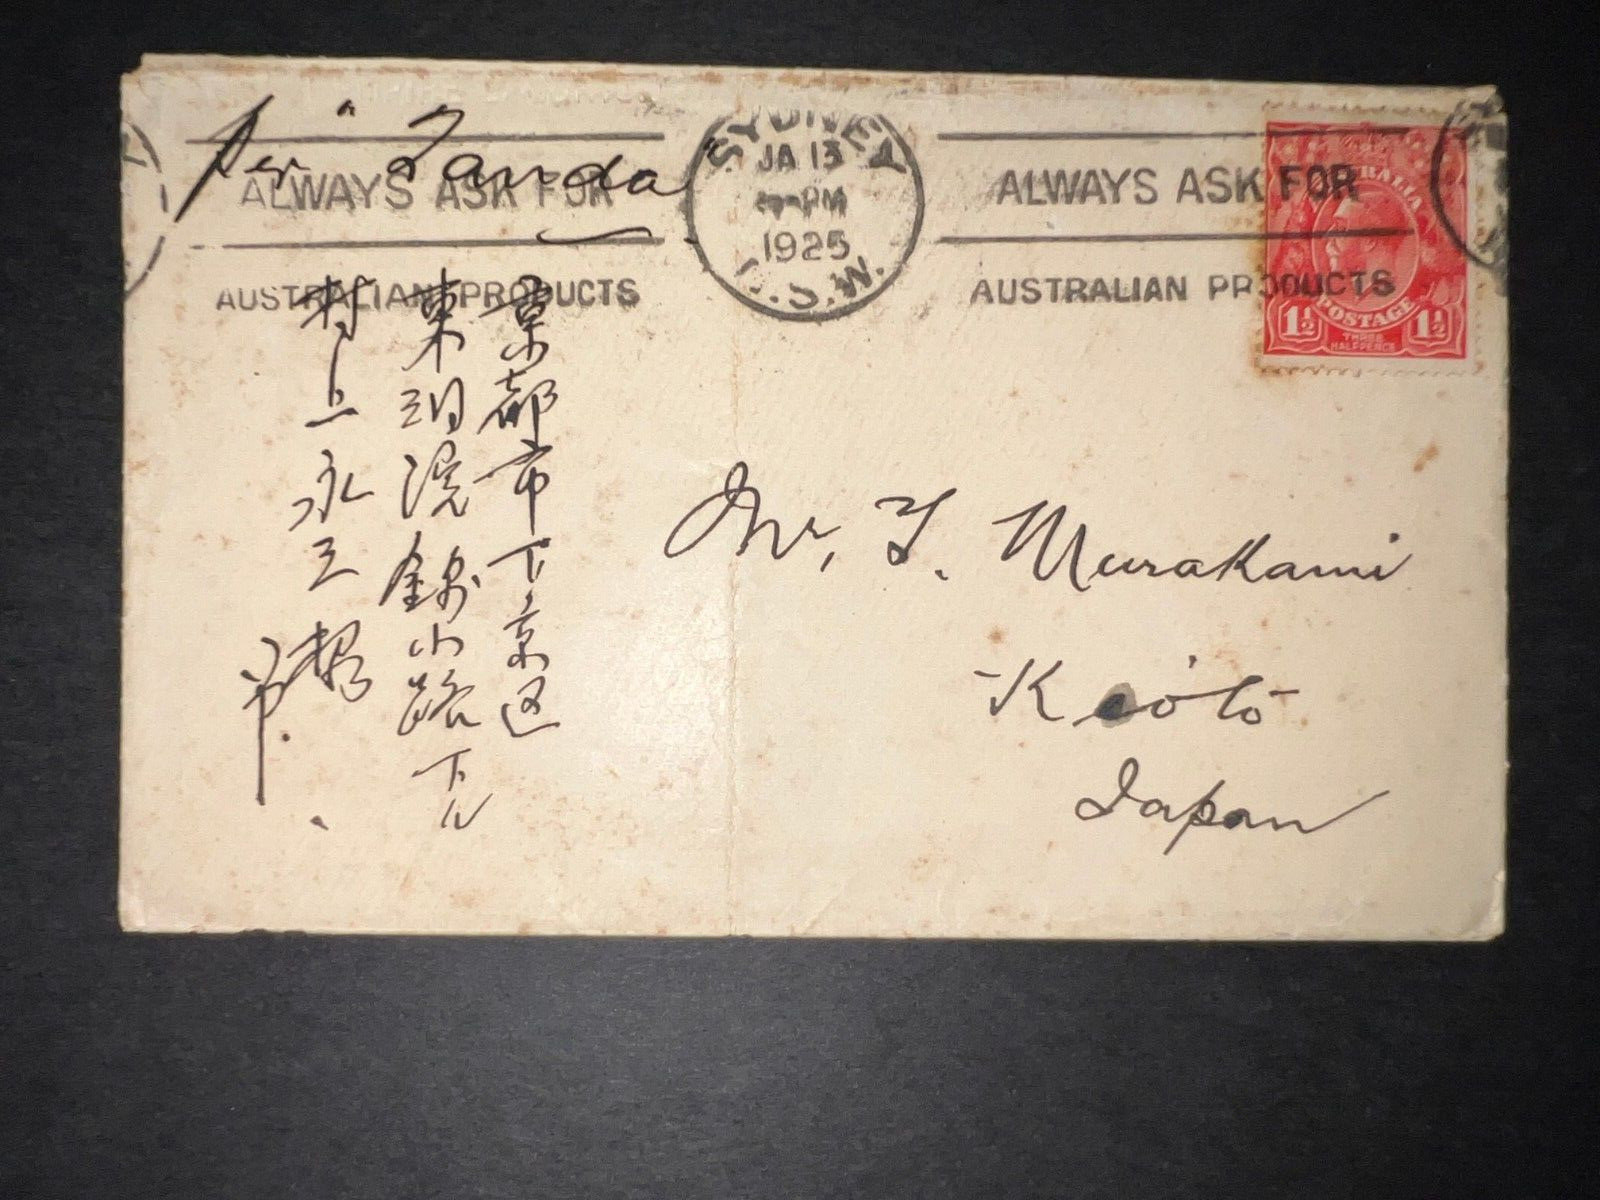 Per "Tanda
SYDNEY
JA 13
PM
1925
N.S.W.
ALWAYS ASK FOR
AUSTRALIAN PRODUCTS
ALWAYS ASK FOR
AUSTRALIAN PRODUCTS
AUSTRALIA
POSTAGE
1½
1½
THREE
HALFPENCE
Mr, Y. Murakami
Kioto
Japan
京都市下京区
東洞院錦小路下ル
村上永三